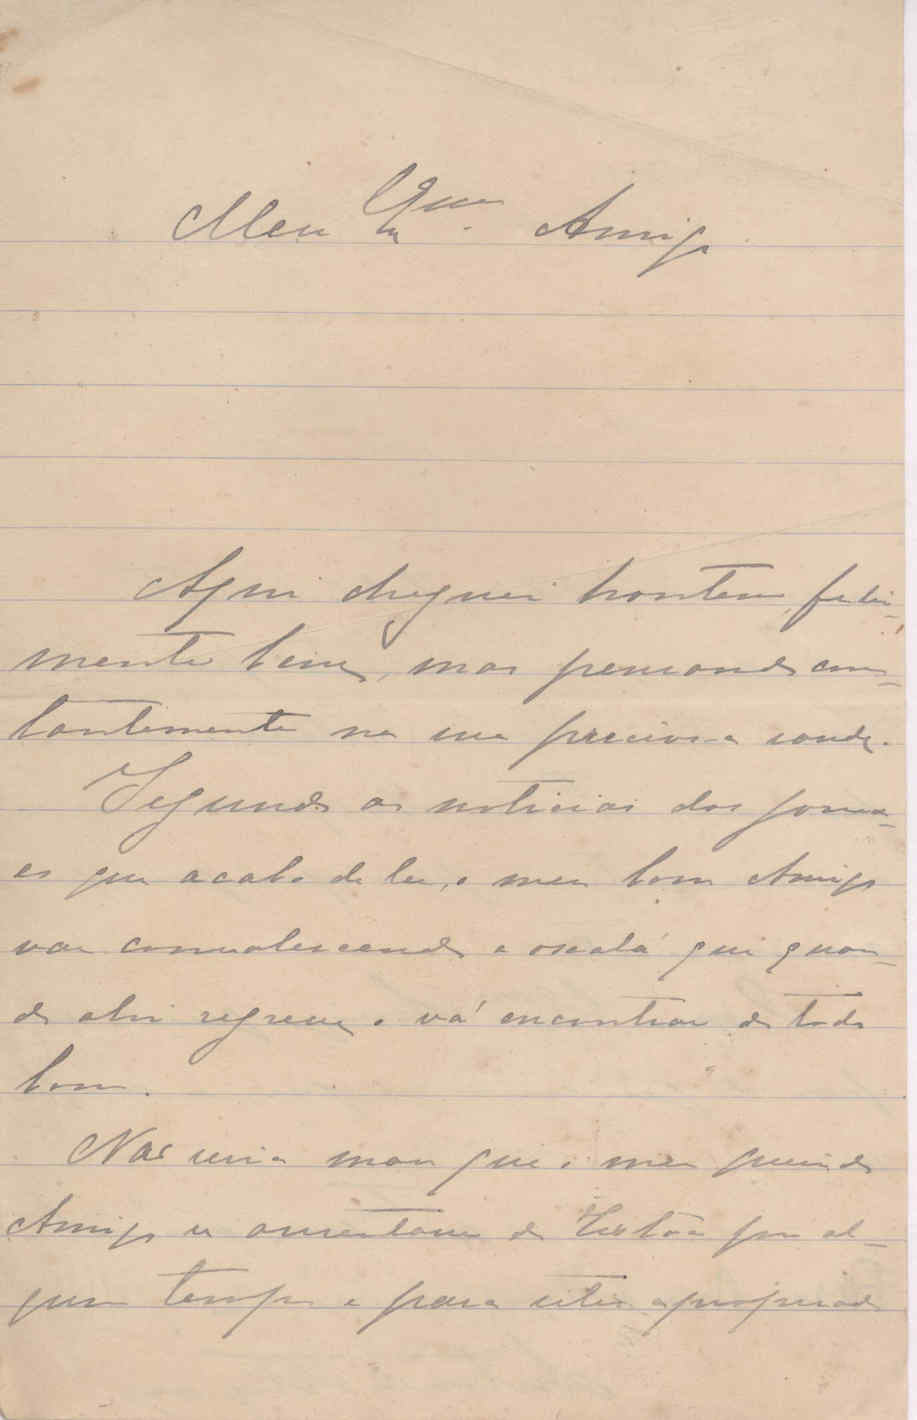 Meu Amigo
Aqui cheguei hontem, feliz-
mente bem, mas pensando cons-
tantemente na sua preciosa saude.
Segundo as noticias dos jorna-
es que acabo de ler, o meu bom Amigo
vae convalescendo e oxalá que quan-
do ahi regresse, o vá encontrar de todo
bom.
Não seria mau que o meu querido
Amigo se ausentasse do Sertão por al-
gum tempo e para sitio apropriado